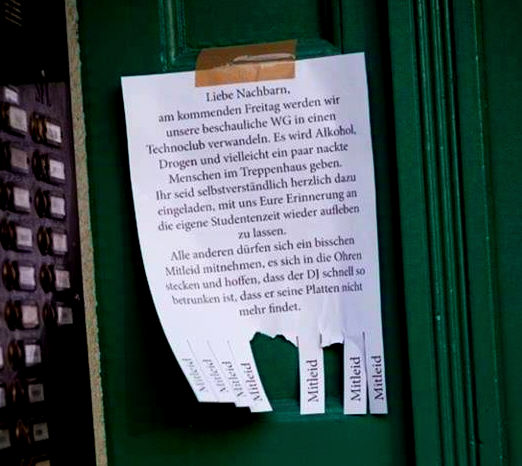 Liebe Nachbarn,
am kommenden Freitag werden wir
unsere beschauliche WG in einen
Technoclub verwandeln. Es wird Alkohol,
Drogen und vielleicht ein paar nackte
Menschen im Treppenhaus geben.
Ihr seid selbstverständlich herzlich dazu
eingeladen, mit uns Eure Erinnerung an
die eigene Studentenzeit wieder aufleben
zu lassen.
Alle anderen dürfen sich ein bisschen
Mitleid mitnehmen, es sich in die Ohren
stecken und hoffen, dass der DJ schnell so
betrunken ist, dass er seine Platten nicht
mehr findet.
Mitleid
Mitleid
Mitleid
Mitleid
Mitleid
Mitleid
Mitleid
Mitleid